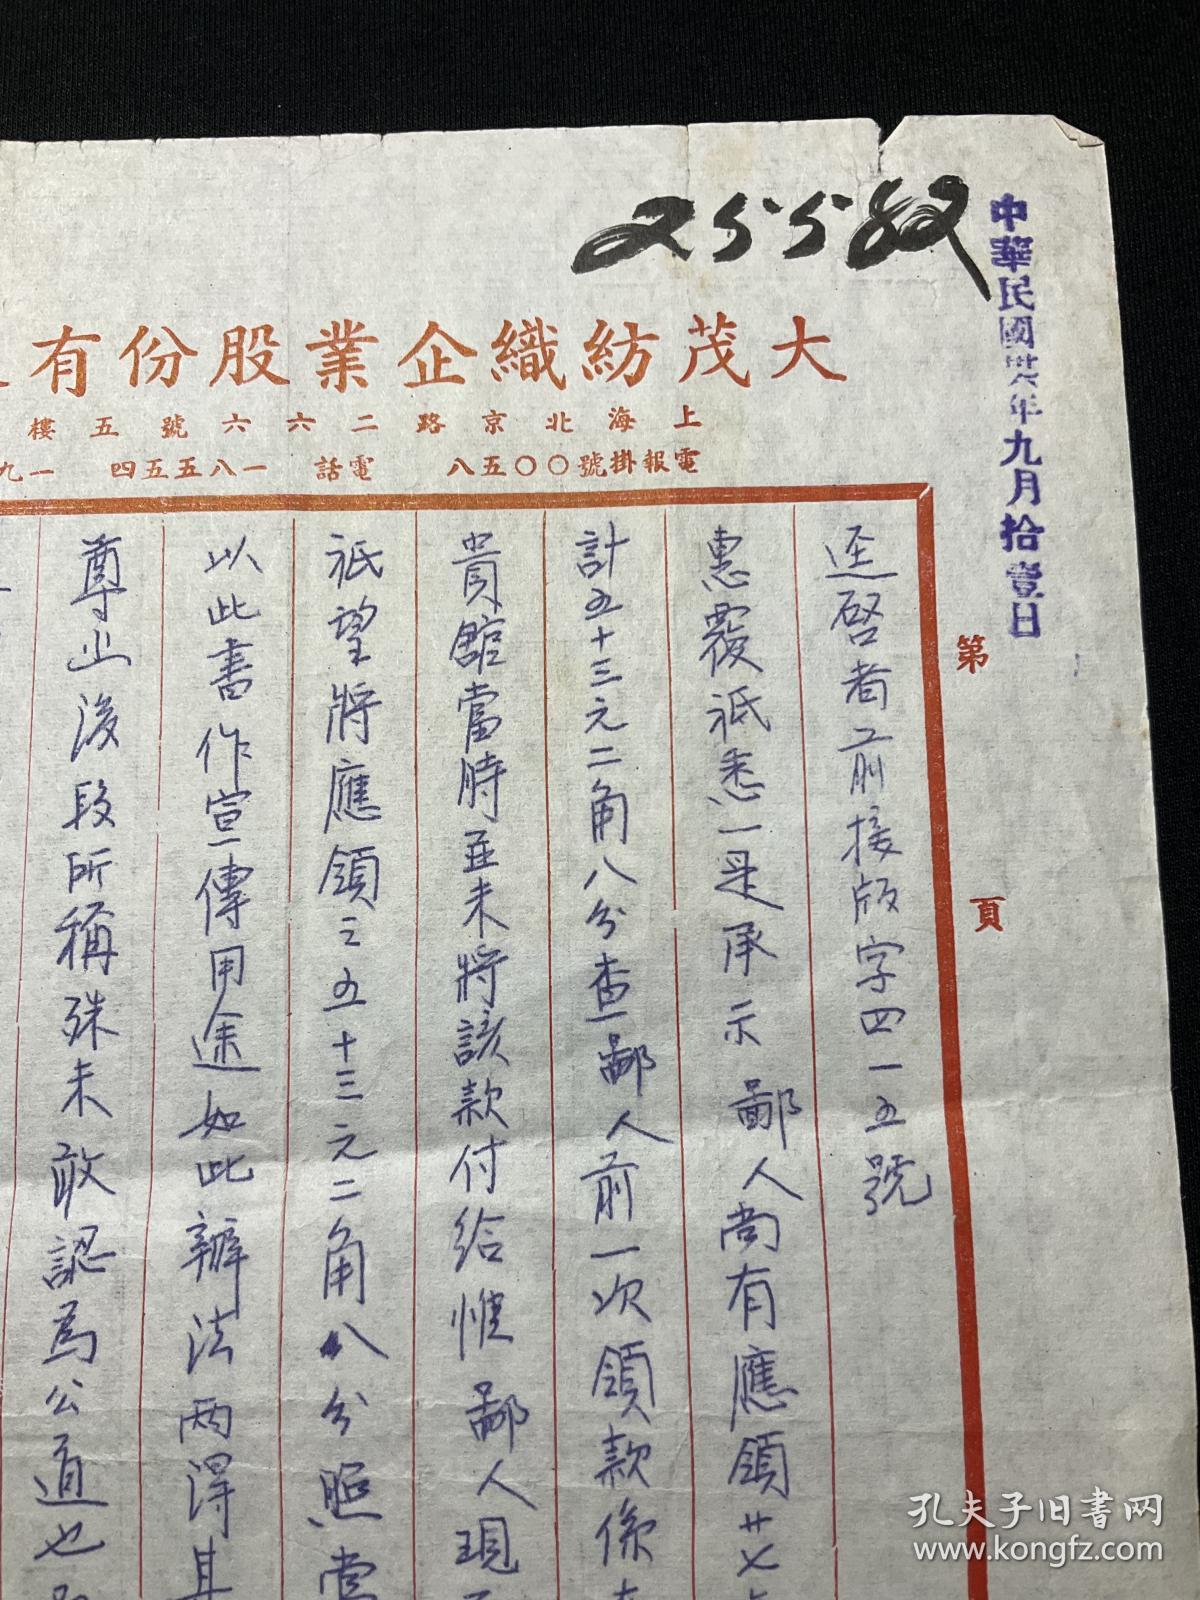 中華民國卅六年九月拾壹日
大茂紡織企業股份有
上海北京路二六六號五樓
電報掛號〇〇五八 電話一八五五四 一九
第 頁
迳啓者前接版字四一五號
惠覆祇悉一是承示鄙人尚有應領廿七
計五十三元二角八分查鄙人前一次領款係
貴館當時並未將該款付給惟鄙人現
祇望將應領之五十三元二角八分照當
以此書作宣傳用途如此辦法兩得其
尊止後段所稱殊未敢認為公道也
孔夫子旧書网
www.kongfz.com